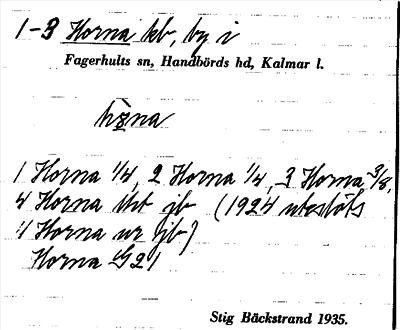 1-3 Horna kb, by i
Fagerhults sn, Handbörds hd, Kalmar l.
1 Horna 1/4, 2 Horna 1/4, 3 Horna 3/8,
4 Horna jb (1924 uteslöts
4 Horna ur jb)
Horna G21
Stig Bäckstrand 1935.